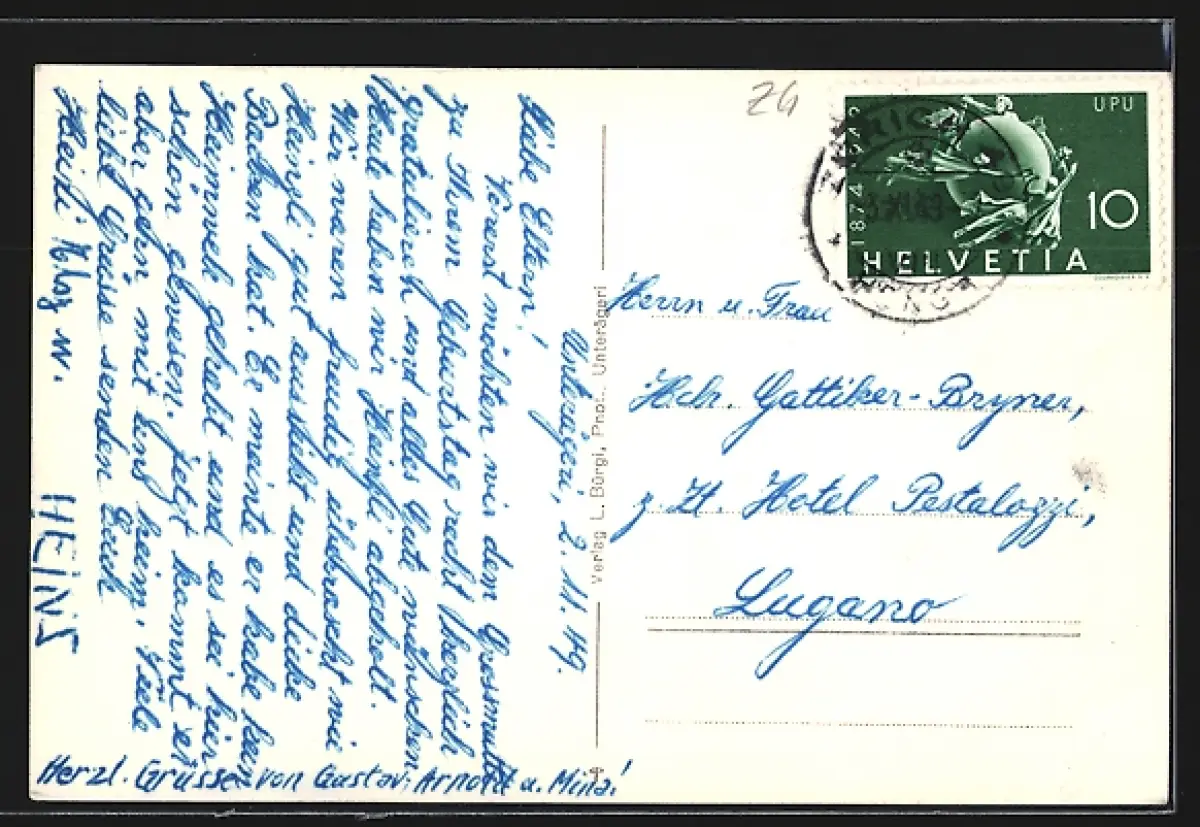 Unterägeri, 2. 11. 49.
Liebe Eltern!
Vorerst möchten wir dem Grossmutti
zu Ihrem Geburtstag recht herzlich
gratulieren und alles Gute wünschen
Heute haben wir Heinzli abgeholt.
Wir waren freudig überrascht wie
Heinzli gut aussieht und dicke
Backen hat. Er meinte er habe kein
Heimweh gehabt und es sei hier
schön gewesen. Jetzt kommt er
aber gern mit uns heim. Viele
liebe Grüsse senden Euch
Heidi w.
HEINZ
Herzl. Grüsse von Gustav, Arnold u. Mina!
Verlag L. Bürgi, Phot., Unterägeri
Z4
UPU
1874 1949
10
HELVETIA
Herrn u. Frau
Hch. Gattiker-Bryner,
z. Zt. Hotel Pestalozzi,
Lugano